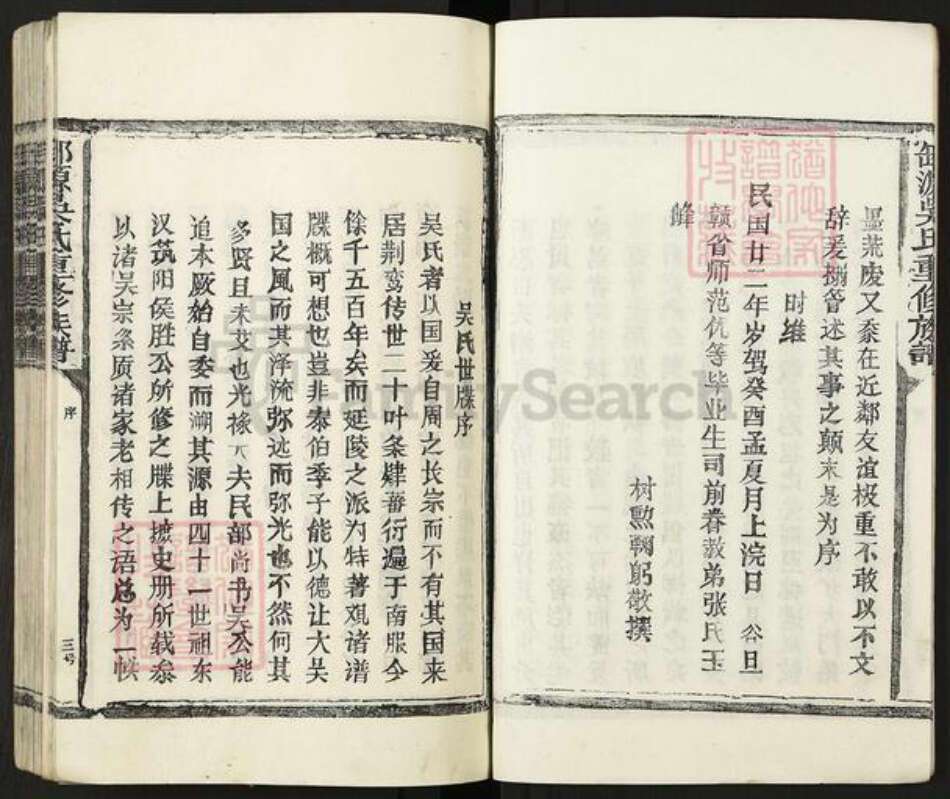 墨荒废又忝在近邻友谊极重不敢以不文
辞爰搦管述其事之颠末是为序
时维
民国廿二年岁驾癸酉孟夏月上浣日 谷旦
赣省师范优等毕业生司前眷教弟张氏玉
峰
树勲鞠躬敬撰
吴氏重修族譜
吴氏世牒序
吴氏者以国爰自周之长宗而不有其国来
居荆蛮传世二十叶条肄蕃衍遍于南服今
馀千五百年矣而延陵之派为特著观诸谱
牒概可想也岂非泰伯季子能以德让大吴
国之風而其泽流弥远而弥光也不然何其
多贤且未艾也光禄大夫民部尚书吴公能
追本厥始自委而溯其源由四十一世祖东
汉筑阳侯胜公所修之牒上摭史册所载叅
以诸吴宗系质诸家老相传之语总为一帙
源吴氏重修族譜
序
三号
FamilySearch